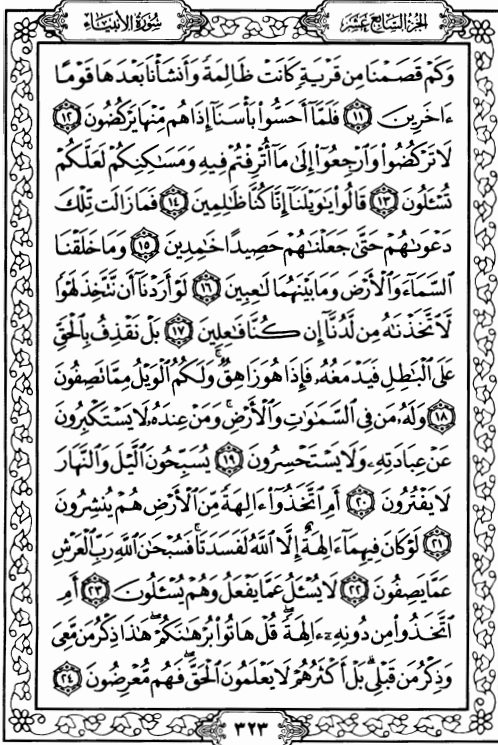 سُورَةُ الأَنبِيَاء
الجُزْءُ السَّابِعَ عَشَر
وَكَمْ قَصَمْنَا مِن قَرْيَةٍ كَانَتْ ظَالِمَةً وَأَنشَأْنَا بَعْدَهَا قَوْمًا
ءَاخَرِينَ ١١ فَلَمَّآ أَحَسُّوا۟ بَأْسَنَآ إِذَا هُم مِّنْهَا يَرْكُضُونَ ١٢
لَا تَرْكُضُوا۟ وَٱرْجِعُوٓا۟ إِلَىٰ مَآ أُتْرِفْتُمْ فِيهِ وَمَسَـٰكِنِكُمْ لَعَلَّكُمْ
تُسْـَٔلُونَ ١٣ قَالُوا۟ يَـٰوَيْلَنَآ إِنَّا كُنَّا ظَـٰلِمِينَ ١٤ فَمَا زَالَت تِّلْكَ
دَعْوَىٰهُمْ حَتَّىٰ جَعَلْنَـٰهُمْ حَصِيدًا خَـٰمِدِينَ ١٥ وَمَا خَلَقْنَا
ٱلسَّمَآءَ وَٱلْأَرْضَ وَمَا بَيْنَهُمَا لَـٰعِبِينَ ١٦ لَوْ أَرَدْنَآ أَن نَّتَّخِذَ لَهْوًا
لَّٱتَّخَذْنَـٰهُ مِن لَّدُنَّآ إِن كُنَّا فَـٰعِلِينَ ١٧ بَلْ نَقْذِفُ بِٱلْحَقِّ
عَلَى ٱلْبَـٰطِلِ فَيَدْمَغُهُۥ فَإِذَا هُوَ زَاهِقٌ ۚ وَلَكُمُ ٱلْوَيْلُ مِمَّا تَصِفُونَ
١٨ وَلَهُۥ مَن فِى ٱلسَّمَـٰوَٰتِ وَٱلْأَرْضِ ۚ وَمَنْ عِندَهُۥ لَا يَسْتَكْبِرُونَ
عَنْ عِبَادَتِهِۦ وَلَا يَسْتَحْسِرُونَ ١٩ يُسَبِّحُونَ ٱلَّيْلَ وَٱلنَّهَارَ
لَا يَفْتُرُونَ ٢٠ أَمِ ٱتَّخَذُوٓا۟ ءَالِهَةً مِّنَ ٱلْأَرْضِ هُمْ يُنشِرُونَ
٢١ لَوْ كَانَ فِيهِمَآ ءَالِهَةٌ إِلَّا ٱللَّهُ لَفَسَدَتَا ۚ فَسُبْحَـٰنَ ٱللَّهِ رَبِّ ٱلْعَرْشِ
عَمَّا يَصِفُونَ ٢٢ لَا يُسْـَٔلُ عَمَّا يَفْعَلُ وَهُمْ يُسْـَٔلُونَ ٢٣ أَمِ
ٱتَّخَذُوا۟ مِن دُونِهِۦٓ ءَالِهَةً ۖ قُلْ هَاتُوا۟ بُرْهَـٰنَكُمْ ۖ هَـٰذَا ذِكْرُ مَن مَّعِىَ
وَذِكْرُ مَن قَبْلِى ۗ بَلْ أَكْثَرُهُمْ لَا يَعْلَمُونَ ٱلْحَقَّ ۖ فَهُم مُّعْرِضُونَ ٢٤
٣٢٣